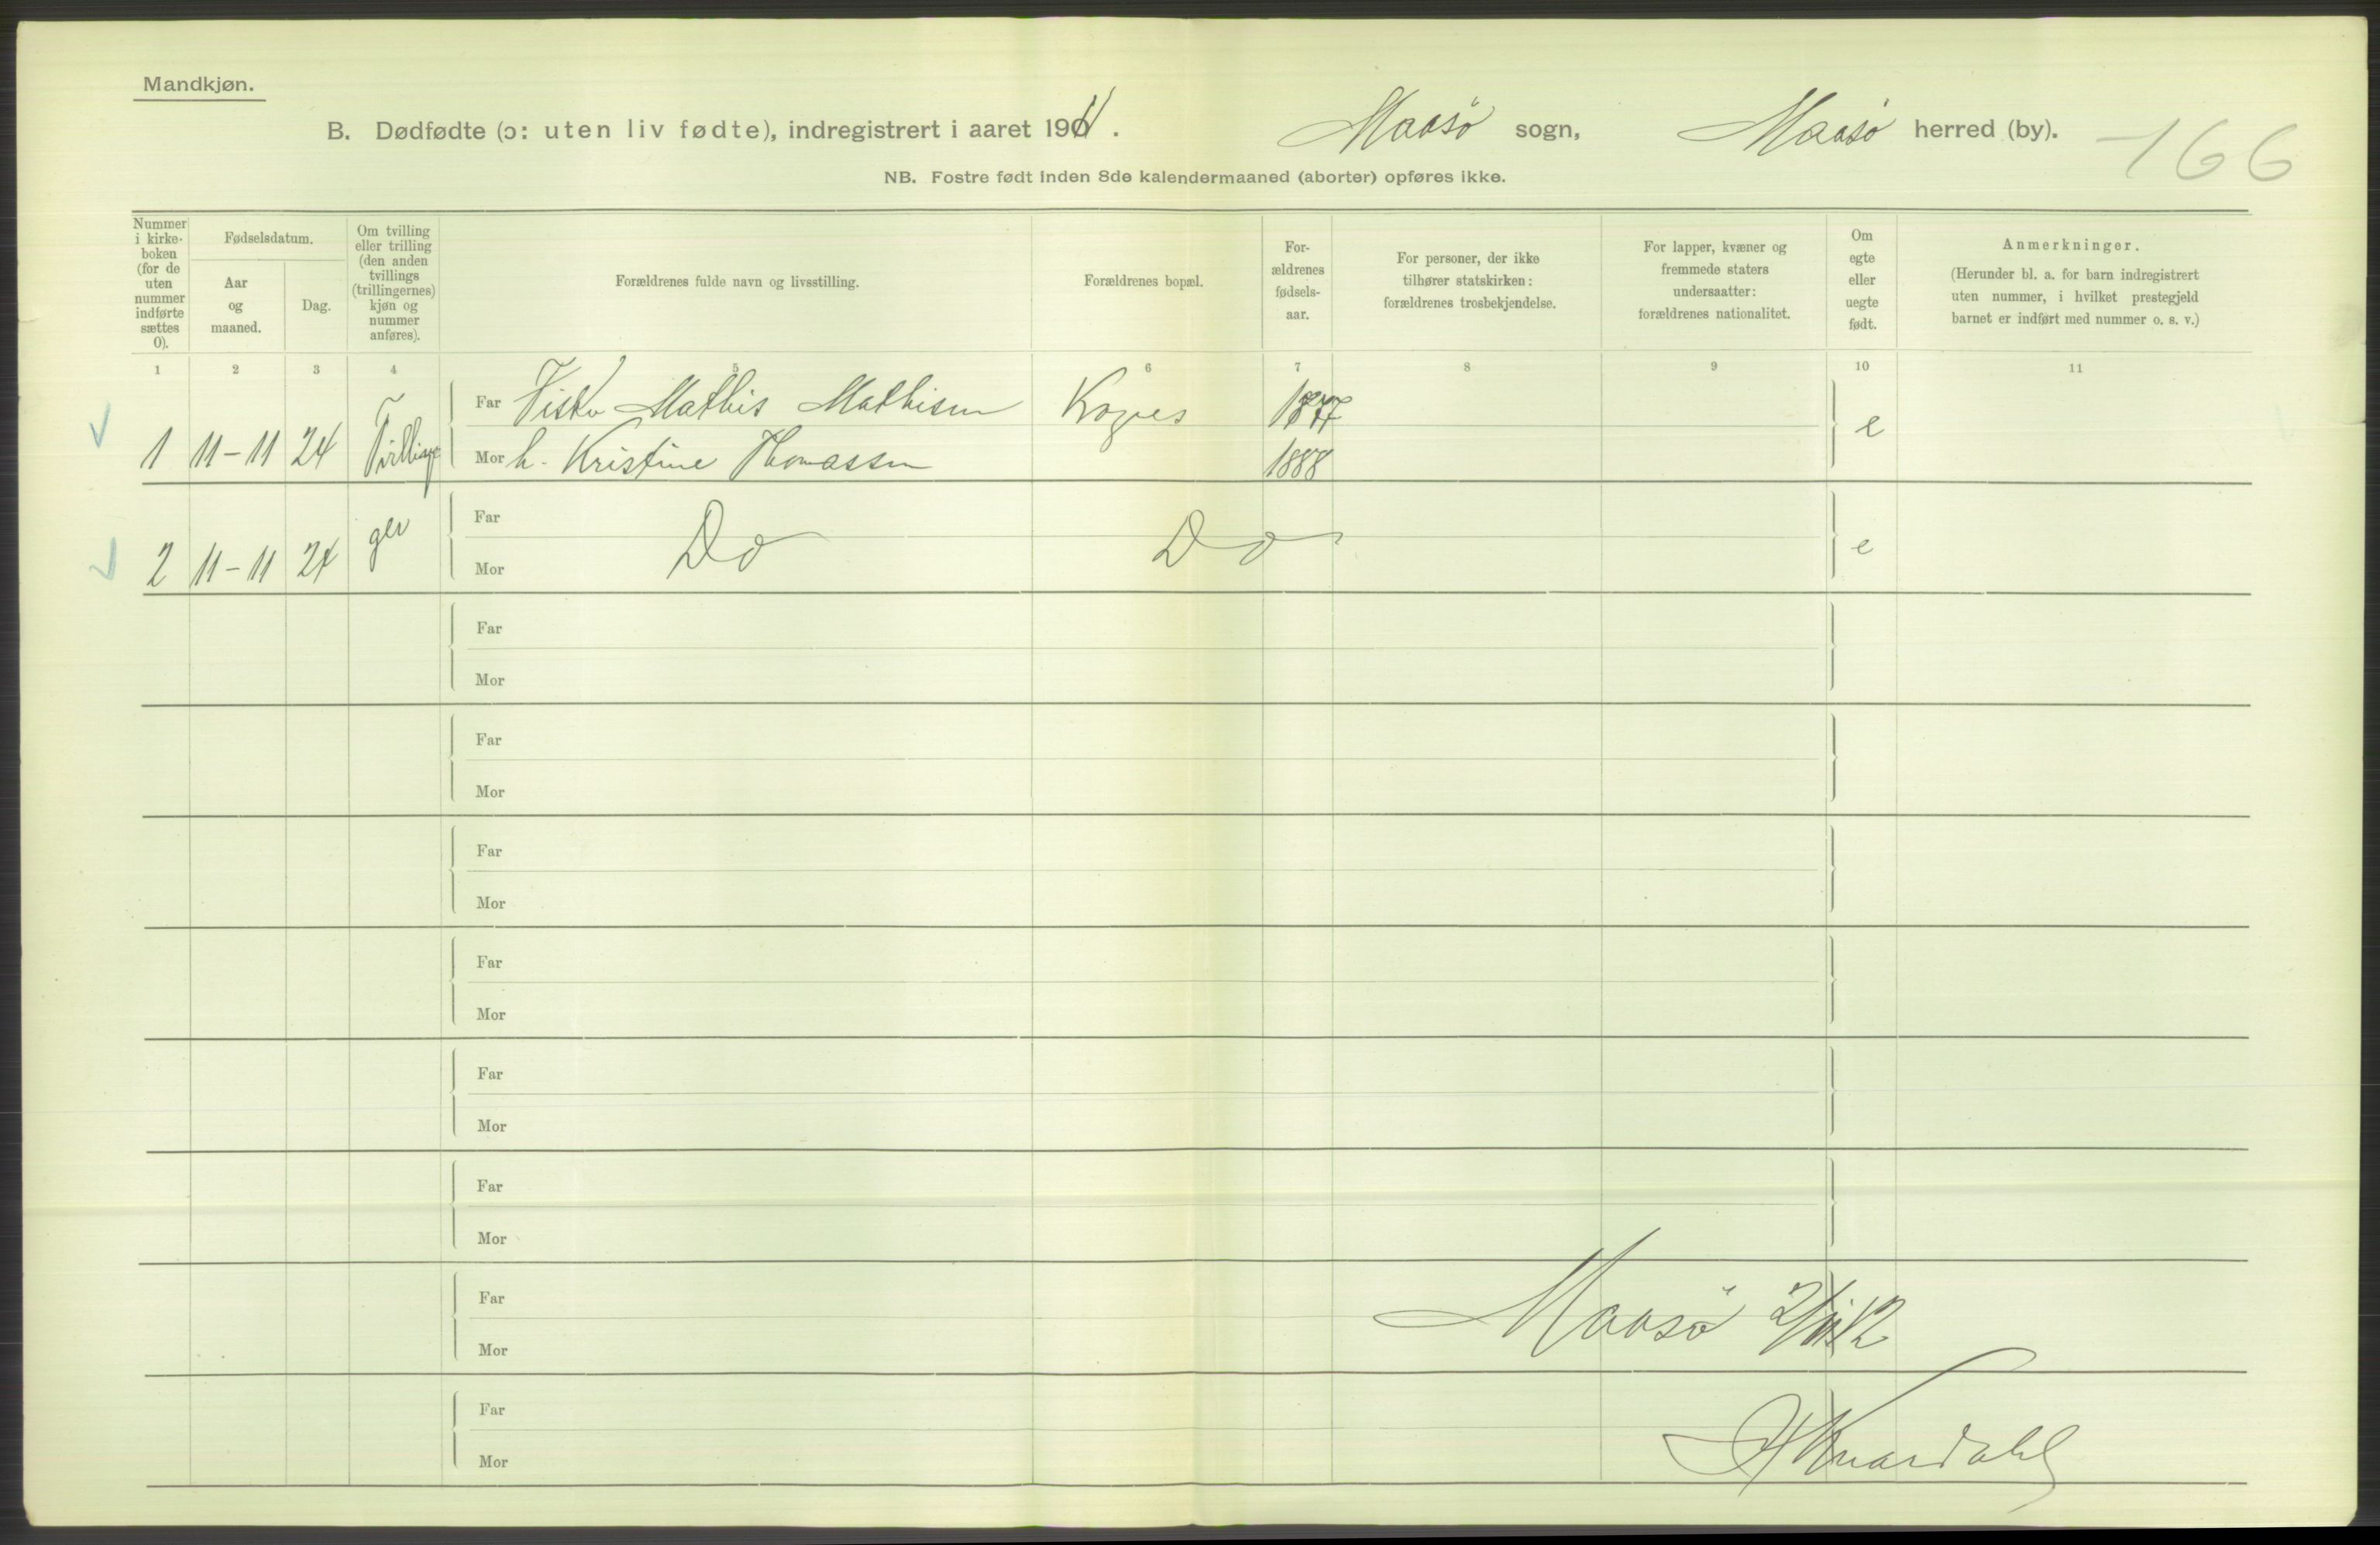 Mandkjøn.
B. Dødfødte (ɔ: uten liv fødte), indregistrert i aaret 1911. Maasø sogn, Maasø herred (by).
166
NB. Fostre født inden 8de kalendermaaned (aborter) opføres ikke.
Nummer i kirke-boken (for de uten nummer indførte sættes 0).
Fødselsdatum.
Aar og maaned.
Dag.
Om tvilling eller trilling (den anden tvillings (trillingernes) kjøn og nummer anføres).
Forældrenes fulde navn og livsstilling.
Forældrenes bopæl.
For-ældrenes fødsels-aar.
For personer, der ikke tilhører statskirken: forældrenes trosbekjendelse.
For lapper, kvæner og fremmede staters undersaatter: forældrenes nationalitet.
Om egte eller uegte født.
Anmerkninger.
(Herunder bl. a. for barn indregistrert uten nummer, i hvilket prestegjeld barnet er indført med nummer o. s. v.)
1 2 3 4 5 6 7 8 9 10 11
Far Fisker Mathis Mathisen Kognes 1877
1 11-11 24 Tvillin- Mor h. Kristine Thomassen 1888 e
Far
2 11-11 24 ger Do Do e
Mor
Far
Mor
Far
Mor
Far
Mor
Far
Mor
Far
Mor
Far
Mor
Far
Maasø 2/1 12
Mor
Far
Knardahl
Mor